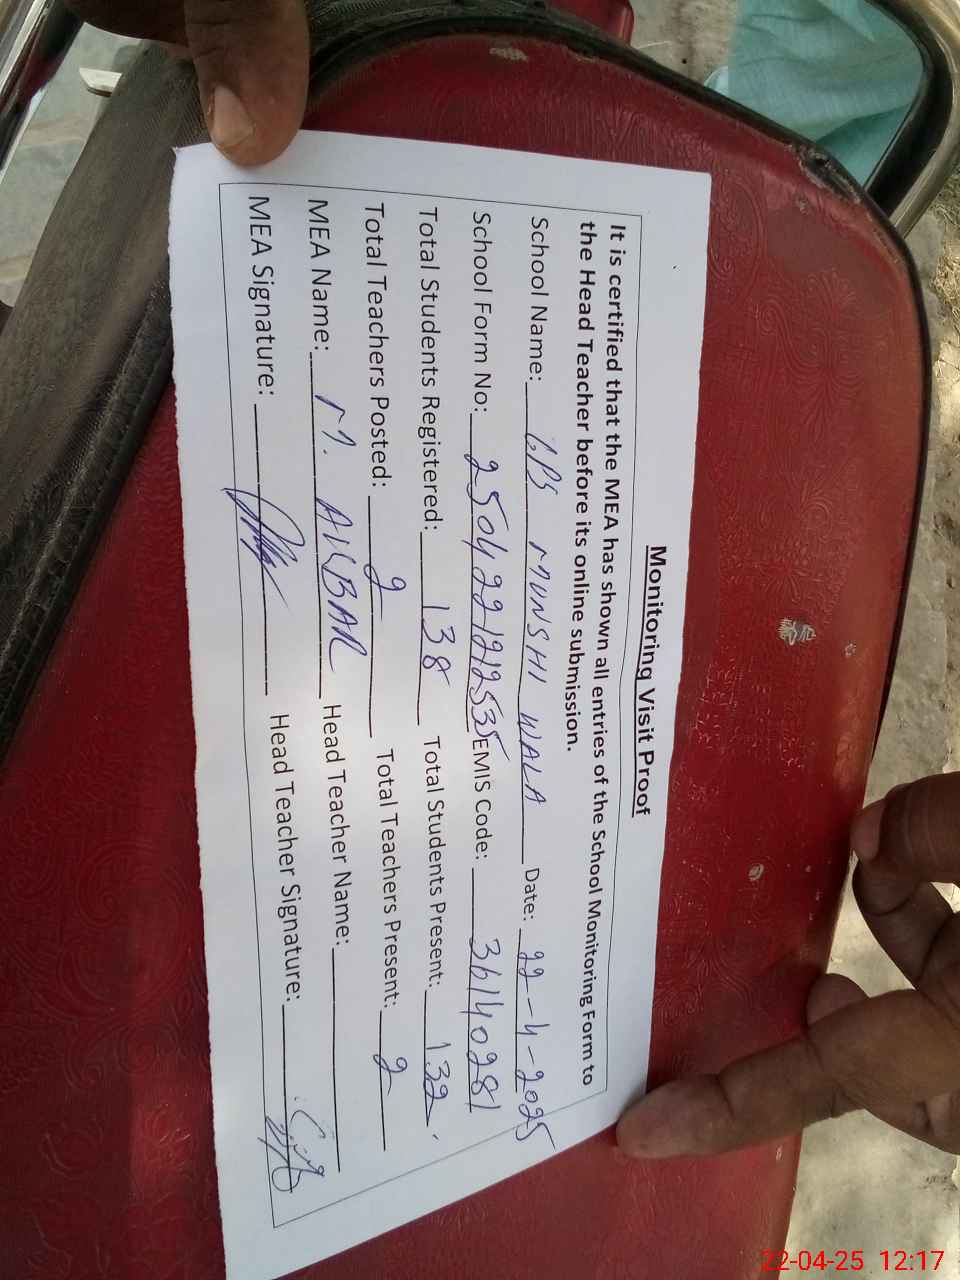 Monitoring Visit Proof
It is certified that the MEA has shown all entries of the School Monitoring Form to
the Head Teacher before its online submission.
School Name: GPS MUNSHI WALA Date: 22-4-2025
School Form No: 2504221212535 EMIS Code: 36140281
Total Students Registered: 138 Total Students Present: 132
Total Teachers Posted: 2 Total Teachers Present: 2
MEA Name: M. AKBAR Head Teacher Name:
MEA Signature: Head Teacher Signature:
22-04-25 12:17